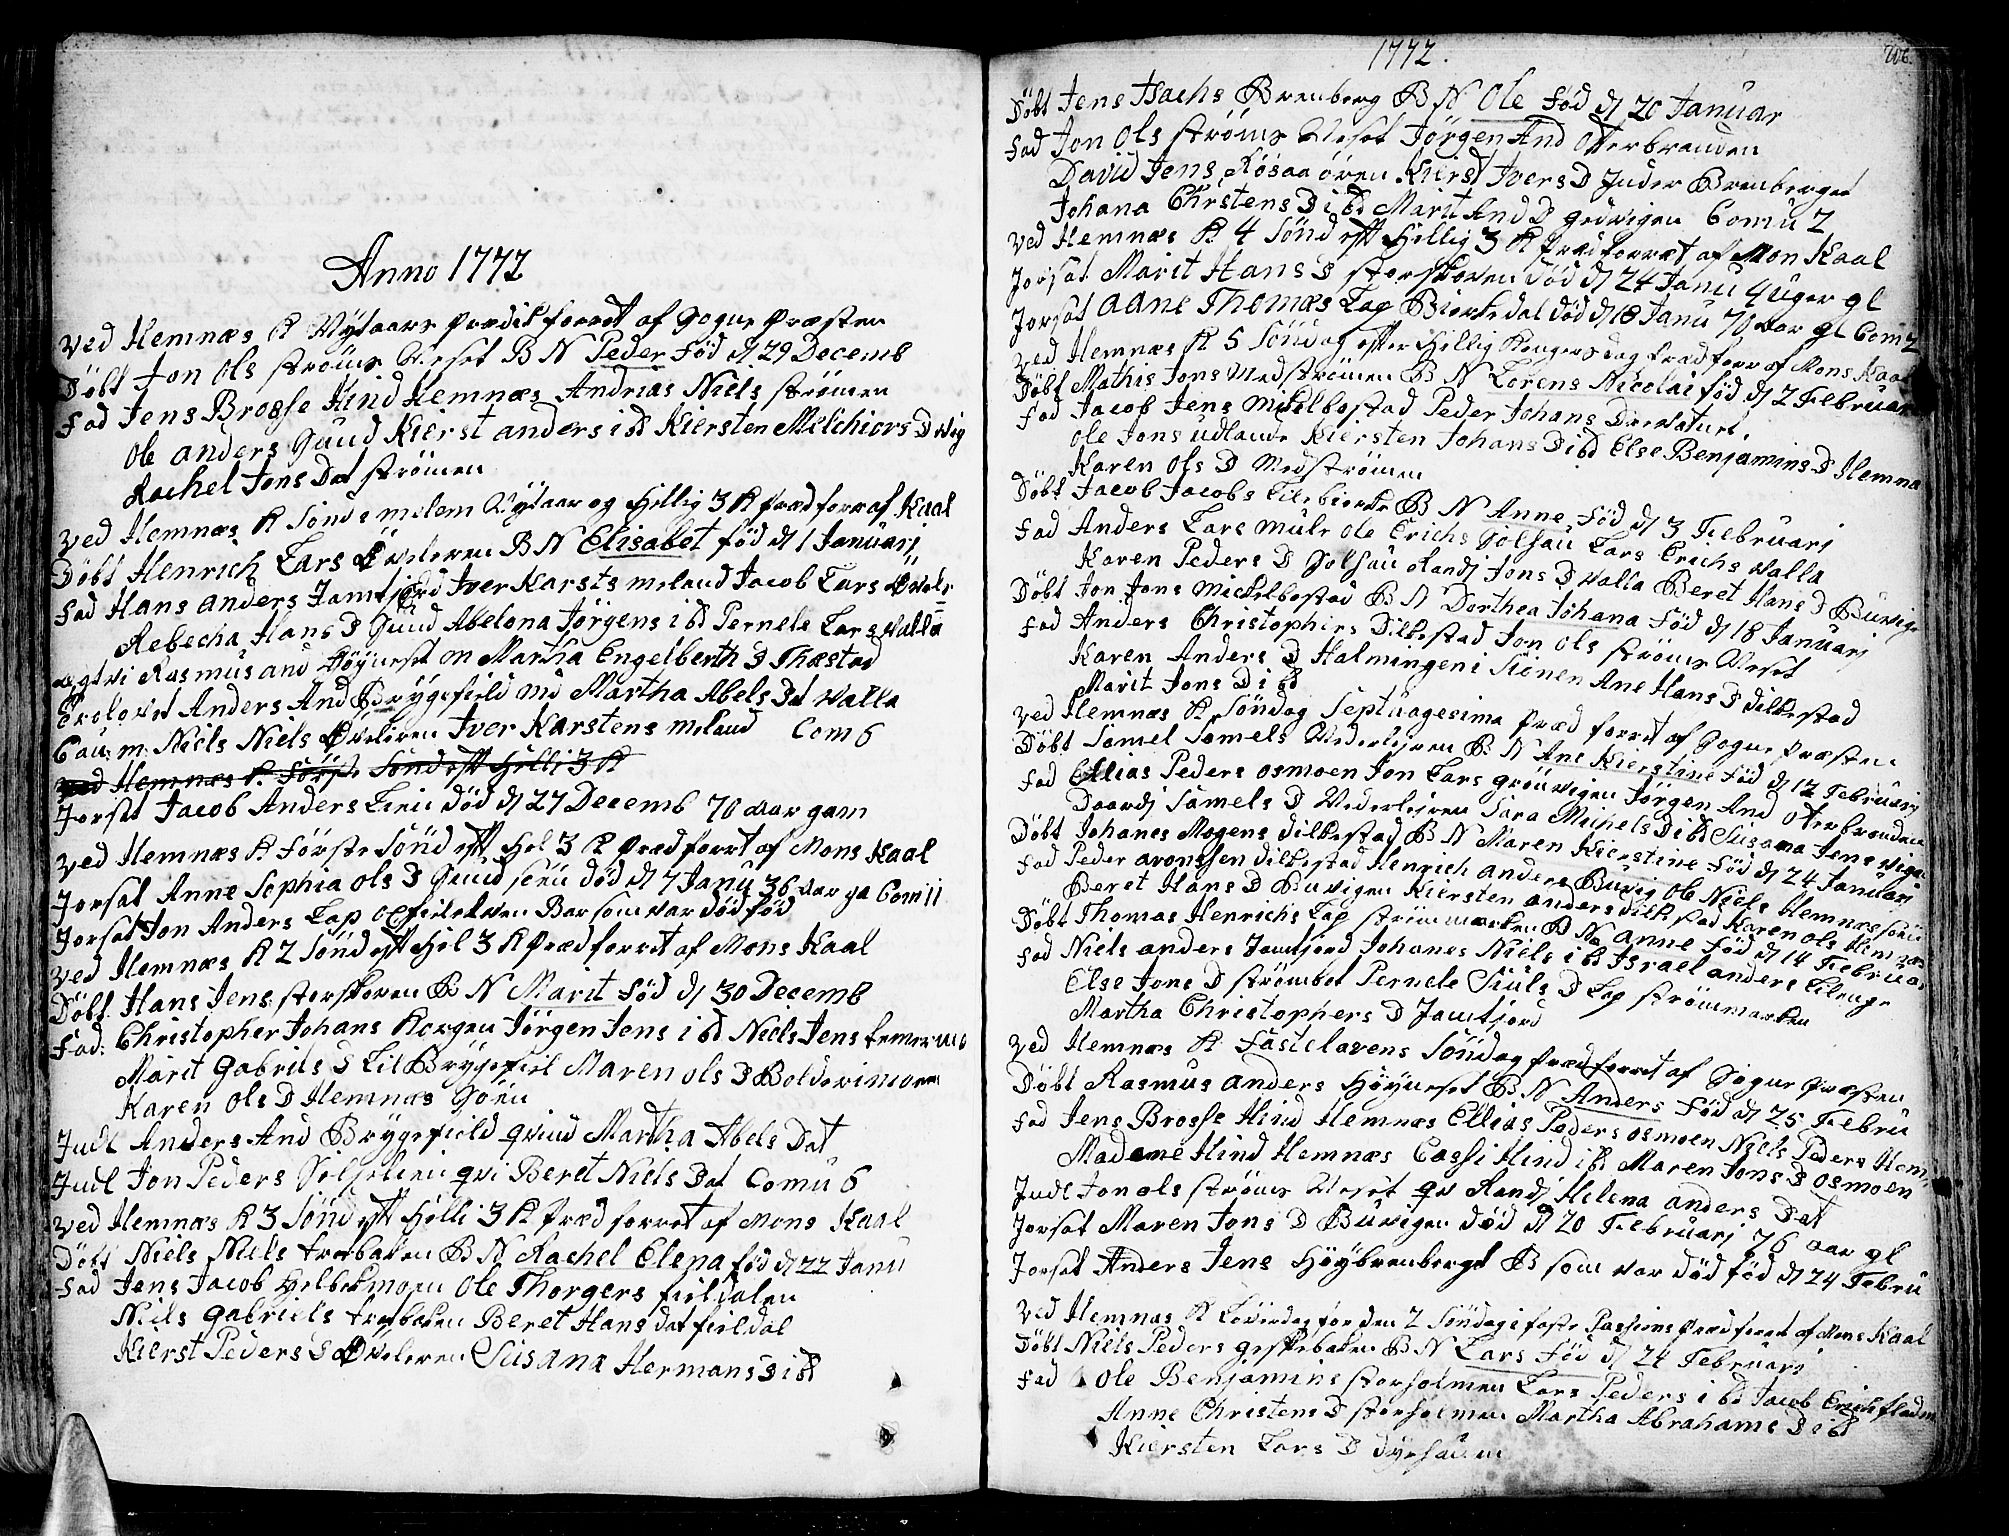 Anno 1772
Ved Hemnæs K Nytaars Prædik forret af Sogne Præsten
Döbt Jon Ols ströms Neset B N Peder Föd d 29 Decemb
Fad Jens Brosse Hind Hemnæs Andrias Niels strömen
Ole anders Sund Kierst anders ibd Kiersten Melchiors D vig
Rachel Jons Dat strömen
Ved Hemnæs K Sönd imelem Nytaar og Hellig 3 K Præd forr af Kaal
Döbt Henrich Lars Öveleren B N Elisabet föd d 1 Januari
Fad Hans anders Jamtfiord Iver Karsts meland Jacob Lars Övele
Rebecha Hans D Sund Abelona Jörgens ibd Pernele Lars valla
ægtvi Rasmus and Höyneset m Martha Engelberth D Thæstad
Trolovet Anders And Brygefield md Martha Abels Dat valla
Cau: m: Niels Niels Öveleren Iver Karstens meland Com 6
Ved Hemnæs K. Förste Sönd eft Helli 3 K
Jorsat Jacob Anders Lien död d 27 Decemb 70 aar gam
Ved Hemnæs K Förste Sönd eft Hel 3 K Præd forrt af Mons Kaal
Jorsat Anne Sophia Ols D Sund söen död d 7 Janu 36 aar ga Com 11
Jorsat Jon Anders Lap Barsom var död föd
Ved Hemnæs K 2 Sönd eft Hel 3 K Præd forret af Mons Kaal
Döbt Hans Jens storskoven B N Marit Föd d 30 Decemb
Fad: Christopher Johans Korgen Jörgen Jons ibd Niels Jens
Marit Gabriels D Lil Brygefiel Maren Ols D Boldermoen
Karen Ols D Hemnæs Söen
Indl Anders And Brygefield qvind Martha Abels Dat
Indl Jon Peders qvi Beret Niels Dat Comu 6
Ved Hemnæs K 3 Sönd eft Helli 3 K Præd forret af Mons Kaal
Döbt Niels Niels B N Rachel Elena föd d 22 Janu
Fad Jens Jacob Ole Thorgers fieldalen
Niels Gabriels Beret Hans dat fieldal
Kierst Peders D Öveleren Susana Hermans D ibd
1772.
206
Döbt Jens Isachs Brenberg B N Ole Föd d 20 Januar
Fad Jon Ols ströms Neset Jörgen And Oterbranden
David Jens Rösaaören Kierst Ivers D Inder Brenberget
Johana Christens D ibd Marit And D Comu 2
Ved Hemnæs K. 4 Sönd eft Hellig 3 K Præd forret af Mon Kaal
Jorsat Marit Hans D storskoven död d 24 Janu 4 uger gl
Jorsat Aane Thomæs Lap död d 18 Janu 70 aar gl Com 2
Ved Hemnæs K 5 Söndag efter Hellig Kongers dag Præd forr af Mons Kaal
Döbt Mathis Jons Nedströmen B N Lorens Nicolai föd d 2 Februar
Fad Jacob Jens Mikelbostad Peder Johans
Ole Jons udlands Kiersten Johans D ibd Else Benjamins D Hemna
Karen Ols D Nedströmen
Döbt Jacob Jacobs B N Anne Föd d 3 Februari
Fad Anders Lars mula Ole Erichs Lars Erichs valla
Karen Peders D Jons D valla Beret Hans D Buvige
Döbt Jon Jons Mickelbostad B N Dorthea Johana Föd d 18 Januari
Fad Anders Christophers Dilkestad Jon Ols ströms Neset
Karen Anders D Ane Hans D Dilkestad
Marit Jons D ibd
Ved Hemnæs K Söndag Septuagesima Præd forret af Sogne Præsten
Döbt Samel Samels Nederleiren B N Ane Kierstine föd d 12 Februarj
Fad Ellias Peders Osmoen Jon Lars grönvigen Jörgen And Oterbranden
Samels D Nederleiren Sara Michels D ibd Susana Jens vigen
Döbt Johanes Mogens Dilkestad B N Maren Kierstine Föd d 24 Januari
Fad Peder aronssen Dilkestad Henrich anders Buvig Ole Niels Hemnæs söen
Beret Hans D Buvigen Kiersten anders Dilkestad Karen Ols Hemnæs
Döbt Thomas Henrichs Lap strömmarken B N Anne Föd d 14 Februar
Fad Niels anders Jamtfjord Johanes Niels ibd Israel anders
Else Jons D Pernele D Lap strömmarken
Martha Christophers D Jamtfjord
Ved Hemnæs K Fastelavens Söndag Præd forret af Sogne Præsten
Döbt Rasmus anders Höyneset B N Anders Föd d 25 Febru
Fad Jens Brosse Hind Hemnæs Ellias Peders Osmoen Niels Peders Hem
Madame Hind Hemnæs Cassi Hind ibd Maren Jons D Osmoen
Indl Jon Ols ströms Neset qv Randi Helena anders Dat
Jorsat Maren Jons D Buvigen död d 20 Februari 76 aar gl
Jorsat Anders Jens Höybrenberget B som var död föd d 24 Febru
Ved Hemnæs K Löverdag för den 2 Söndag i faste Passions Præd forret af Mons Kaal
Döbt Niels Peders B N Lars Föd d 24 Februari
Fad Ole Benjamins storholmen Lars Peders ibd Jacob Erichs
Anne Christens D storholmen Martha Abrahams D ibd
Kiersten Lars D